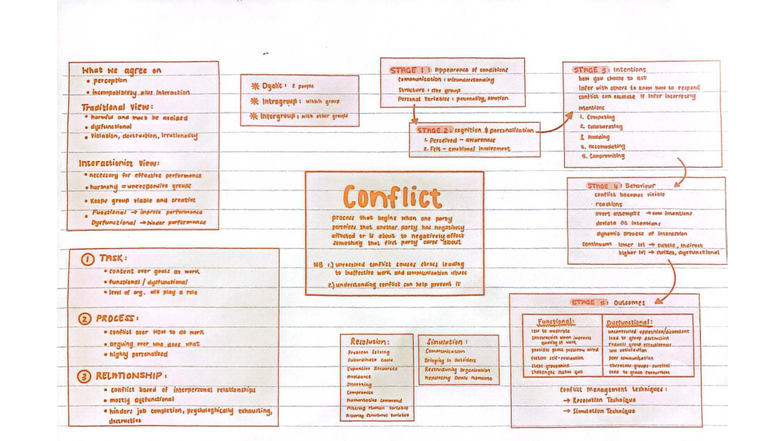 What we agree on
• perception
• incompatibility plus interaction
Traditional View:
• harmful and must be avoided
• dysfunctional
• violation, destruction, irrationality
Interactionist View:
• necessary for effective performance
• harmony = unresponsive groups
• Keeps group viable and creative
Functional → improve performance
Dysfunctional → hinder performance
① TASK:
• content over goals at work
• functional / dysfunctional
• level of org. will play a role
② PROCESS:
• conflict over HOW to do work
• arguing over who does what
• highly personalised
③ RELATIONSHIP:
• conflict based of interpersonal relationships
• mostly dysfunctional
• hinders job completion, psychologically exhausting,
destructive
Dyadic: 2 people
Intragroup: within group
Intergroup: with other groups
Conflict
process that begins when one party
perceives that another party has negatively
affected or is about to negatively affect
something that first party cares about
NB 1.) unresolved conflict causes stress leading
to ineffective work and communication issues
2.) understanding conflict can help prevent it
Resolution:
Problem Solving
Subordinate Goals
Expansion Resources
Avoidance
Smoothing
Compromise
Authoritative command
Altering Human Variable
Altering Structural Variables
Simulation:
Communication
Bringing in Outsiders
Restructuring Organisation
STAGE 1: Appearance of conditions
Communication: misunderstanding
Structure: size group
Personal Variables: personality, emotion
STAGE 2: cognition & personalisation
1. Perceived - awareness
2. Felt - emotional involvement
STAGE 3: Intentions
how you choose to act
infer with others to know how to respond
conflict can escalate if infer incorrectly
Intentions
1. Competing
2. Collaborating
3. Avoiding
4. Accomodating
5. Compromising
STAGE 4: Behaviour
conflict becomes visible
reactions
overt attempts → own intentions
deviate as intentions
dynamic process of interaction
continuum lower lvl → subtle, indirect
higher lvl → dysfunctional
STAGE 5: Outcomes
Functional:
low to moderate
quality of work
Dysfunctional:
lead to group destruction
reduces group effectiveness
poor communication
threatens groups survival
Conflict Management techniques:
→ Resolution Technique
→ Simulation Technique